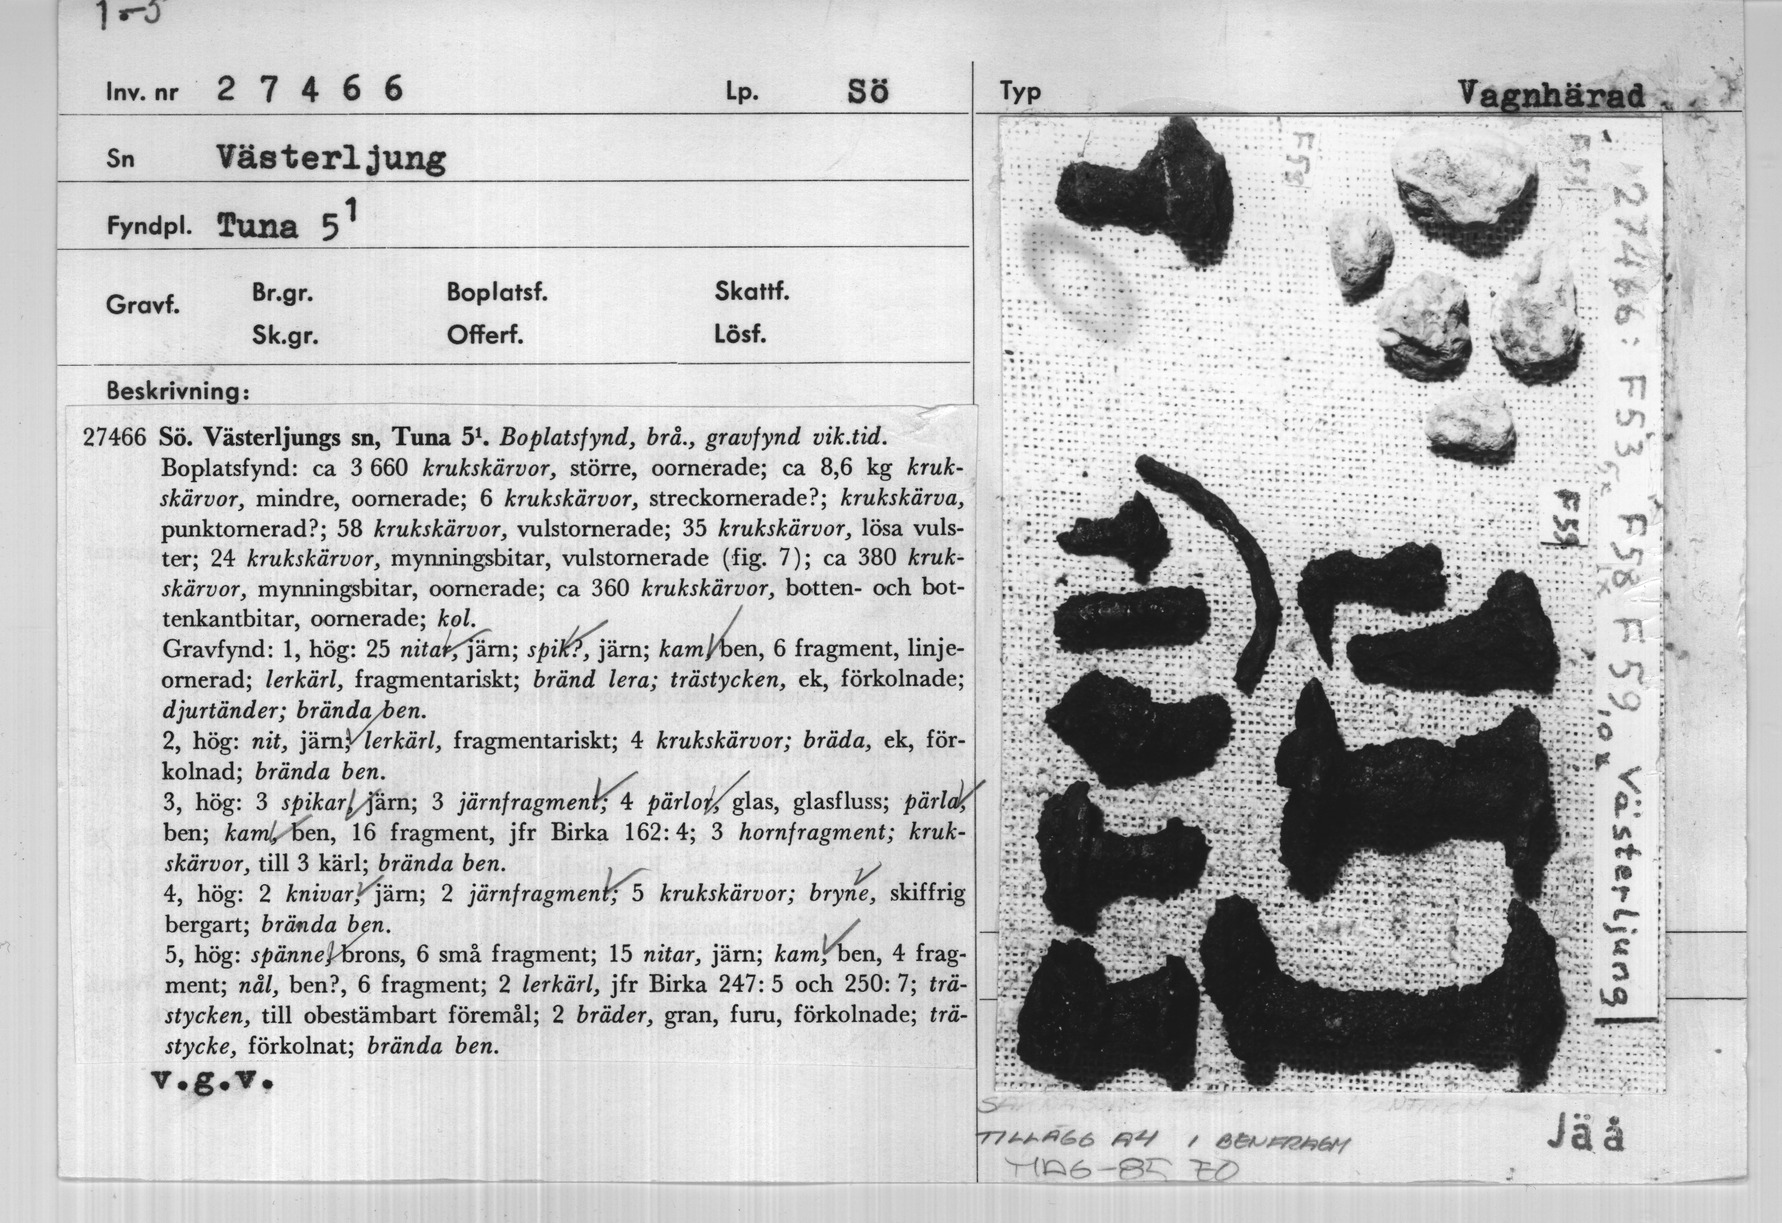 1-5
Inv. nr 2 7 4 6 6 Lp. Sö
Sn Västerljung
Fyndpl. Tuna 5¹
Gravf. Br.gr. Boplatsf. Skattf.
Sk.gr. Offerf. Lösf.
Beskrivning:
27466 Sö. Västerljungs sn, Tuna 5¹. Boplatsfynd, brå., gravfynd vik.tid.
Boplatsfynd: ca 3 660 krukskärvor, större, oornerade; ca 8,6 kg kruk-
skärvor, mindre, oornerade; 6 krukskärvor, streckornerade?; krukskärva,
punktornerad?; 58 krukskärvor, vulstornerade; 35 krukskärvor, lösa vuls-
ter; 24 krukskärvor, mynningsbitar, vulstornerade (fig. 7); ca 380 kruk-
skärvor, mynningsbitar, oornerade; ca 360 krukskärvor, botten- och bot-
tenkantbitar, oornerade; kol.
Gravfynd: 1, hög: 25 nitar, järn; spik?, järn; kam, ben, 6 fragment, linje-
ornerad; lerkärl, fragmentariskt; bränd lera; trästycken, ek, förkolnade;
djurtänder; brända ben.
2, hög: nit, järn; lerkärl, fragmentariskt; 4 krukskärvor; bräda, ek, för-
kolnad; brända ben.
3, hög: 3 spikar, järn; 3 järnfragment; 4 pärlor, glas, glasfluss; pärla,
ben; kam, ben, 16 fragment, jfr Birka 162: 4; 3 hornfragment; kruk-
skärvor, till 3 kärl; brända ben.
4, hög: 2 knivar, järn; 2 järnfragment; 5 krukskärvor; bryne, skiffrig
bergart; brända ben.
5, hög: spänne, brons, 6 små fragment; 15 nitar, järn; kam, ben, 4 frag-
ment; nål, ben?, 6 fragment; 2 lerkärl, jfr Birka 247: 5 och 250: 7; trä-
stycken, till obestämbart föremål; 2 bräder, gran, furu, förkolnade; trä-
stycke, förkolnat; brända ben.
v.g.v.
Typ Vagnhärad
F53
F58
F59
27466: F53 F58 F59 Västerljung
TILLÄGG A4 1 BENFRAGM
Jäå